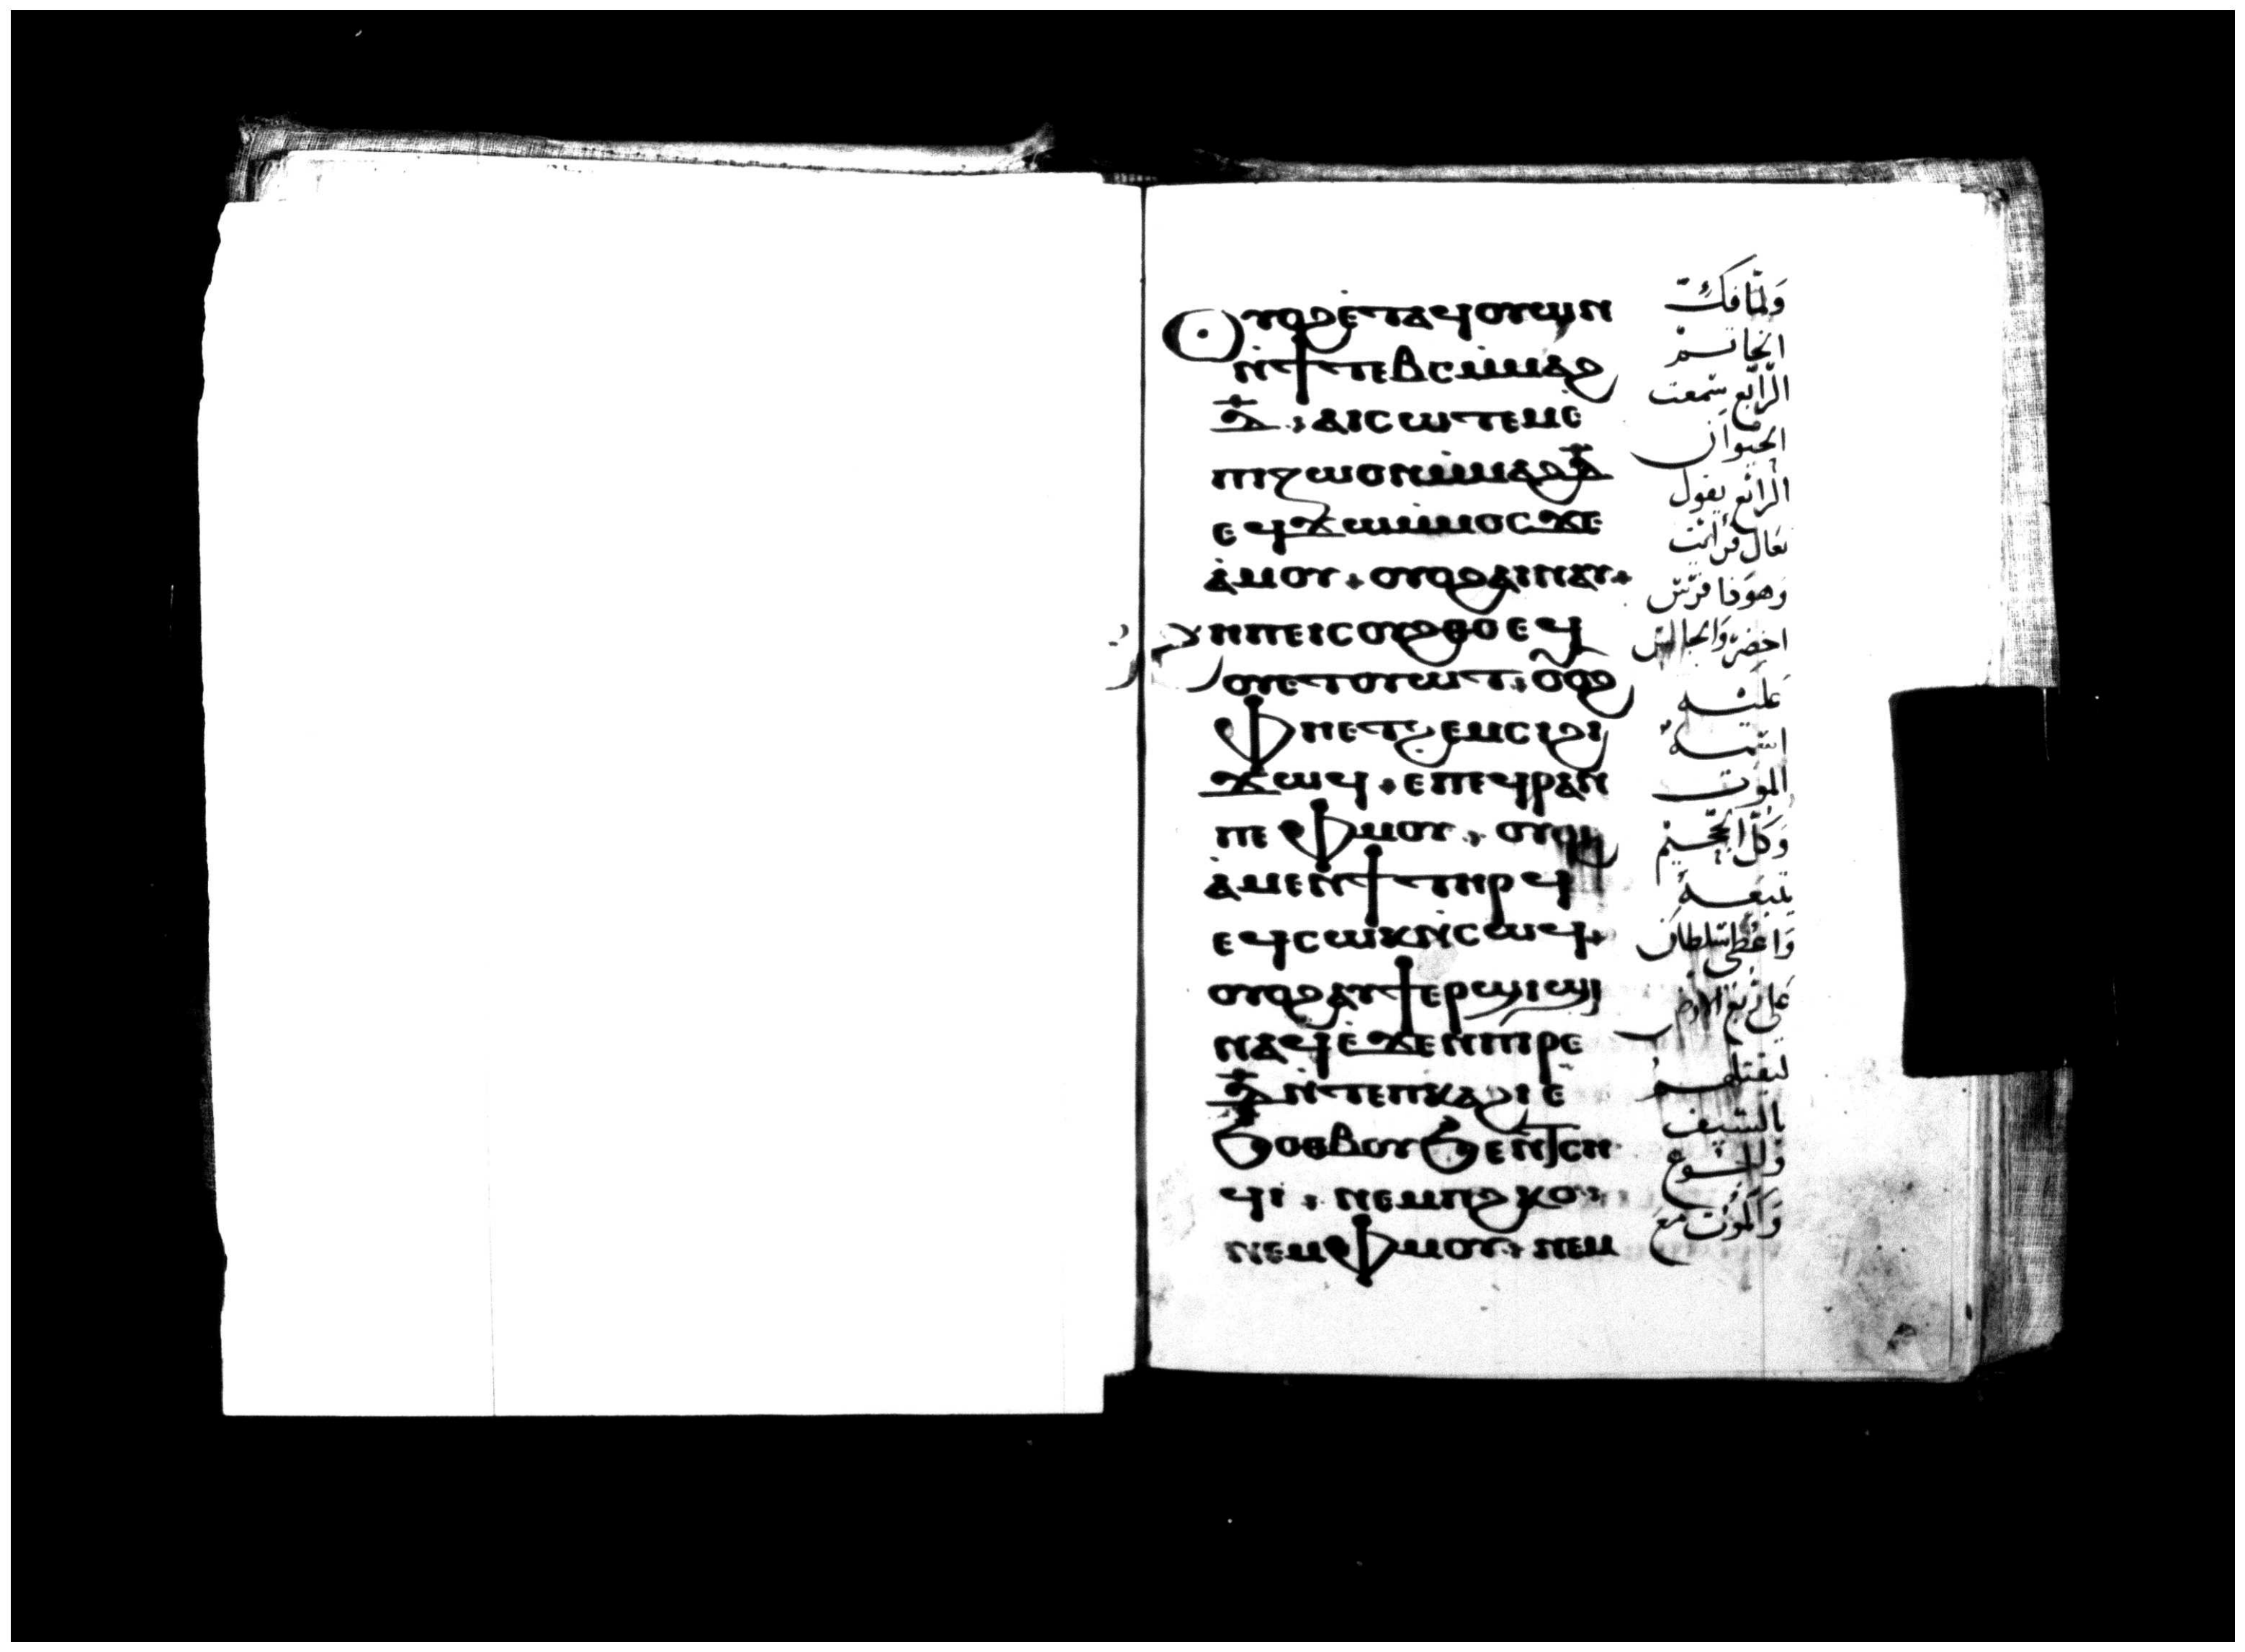 Ⲟⲩⲟϩⲉ̇ⲧⲁϥⲟⲩⲱⲛ
ⲛ̇ϯⲧⲉⲃⲥⲙ̇ⲙⲁϩ
ⲇ̅ : ⲁⲓⲥⲱⲧⲉⲙⲉ
ⲡⲓⲍⲱⲟⲛⲙ̇ⲙⲁϩⲇ̅
ⲉϥϫⲱⲙ̇ⲙⲟⲥϫⲉ
ⲁ̇ⲙⲟⲩ + ⲟⲩⲟϩⲁⲓⲛⲁⲩ +
ⲟⲩⲉⲧⲟⲩⲱⲧ : ⲟⲩⲟϩ
ⲫⲏⲉⲧϩⲉⲙⲥⲓϩⲓ
ϫⲱϥ + ⲉⲡⲉϥⲣⲁⲛ
ⲡⲉ ⲫⲙⲟⲩ : ⲟⲩⲟϩ
ⲁ̇ⲙⲉⲛϯⲧⲏⲣϥ
ⲉϥⲥⲱⲕⲛ̇ⲥⲱϥ +
ⲟⲩⲟϩⲁⲩϯⲉⲣϣⲓϣⲓ
ⲛⲁϥⲉ̇ϫⲉⲛⲡⲓⲣⲉ
ⲇ̅ⲛ̇ⲧⲉⲡⲕⲁϩⲓ ⲉ
ϧⲟⲑⲃⲟⲩϧⲉⲛⲧ̇ⲥⲏ
ϥⲓ : ⲛⲉⲙⲡϩⲕⲟ :
ⲛⲉⲙⲫⲙⲟⲩ + ⲛⲉⲙ
وَلمّا فكّ
الخاتم
الرّابع سمعت
الحيوان
الرّابع يقول
تعال فرائت
وهوذا فرس
اخضر والجالس
عليه
اسمه
الموت
وكل الجحيم
تتبعه
وَاعُطى سلطان
على ربع الارض
ليقتلهم
بالسيف
والجوع
وَالموُت مع